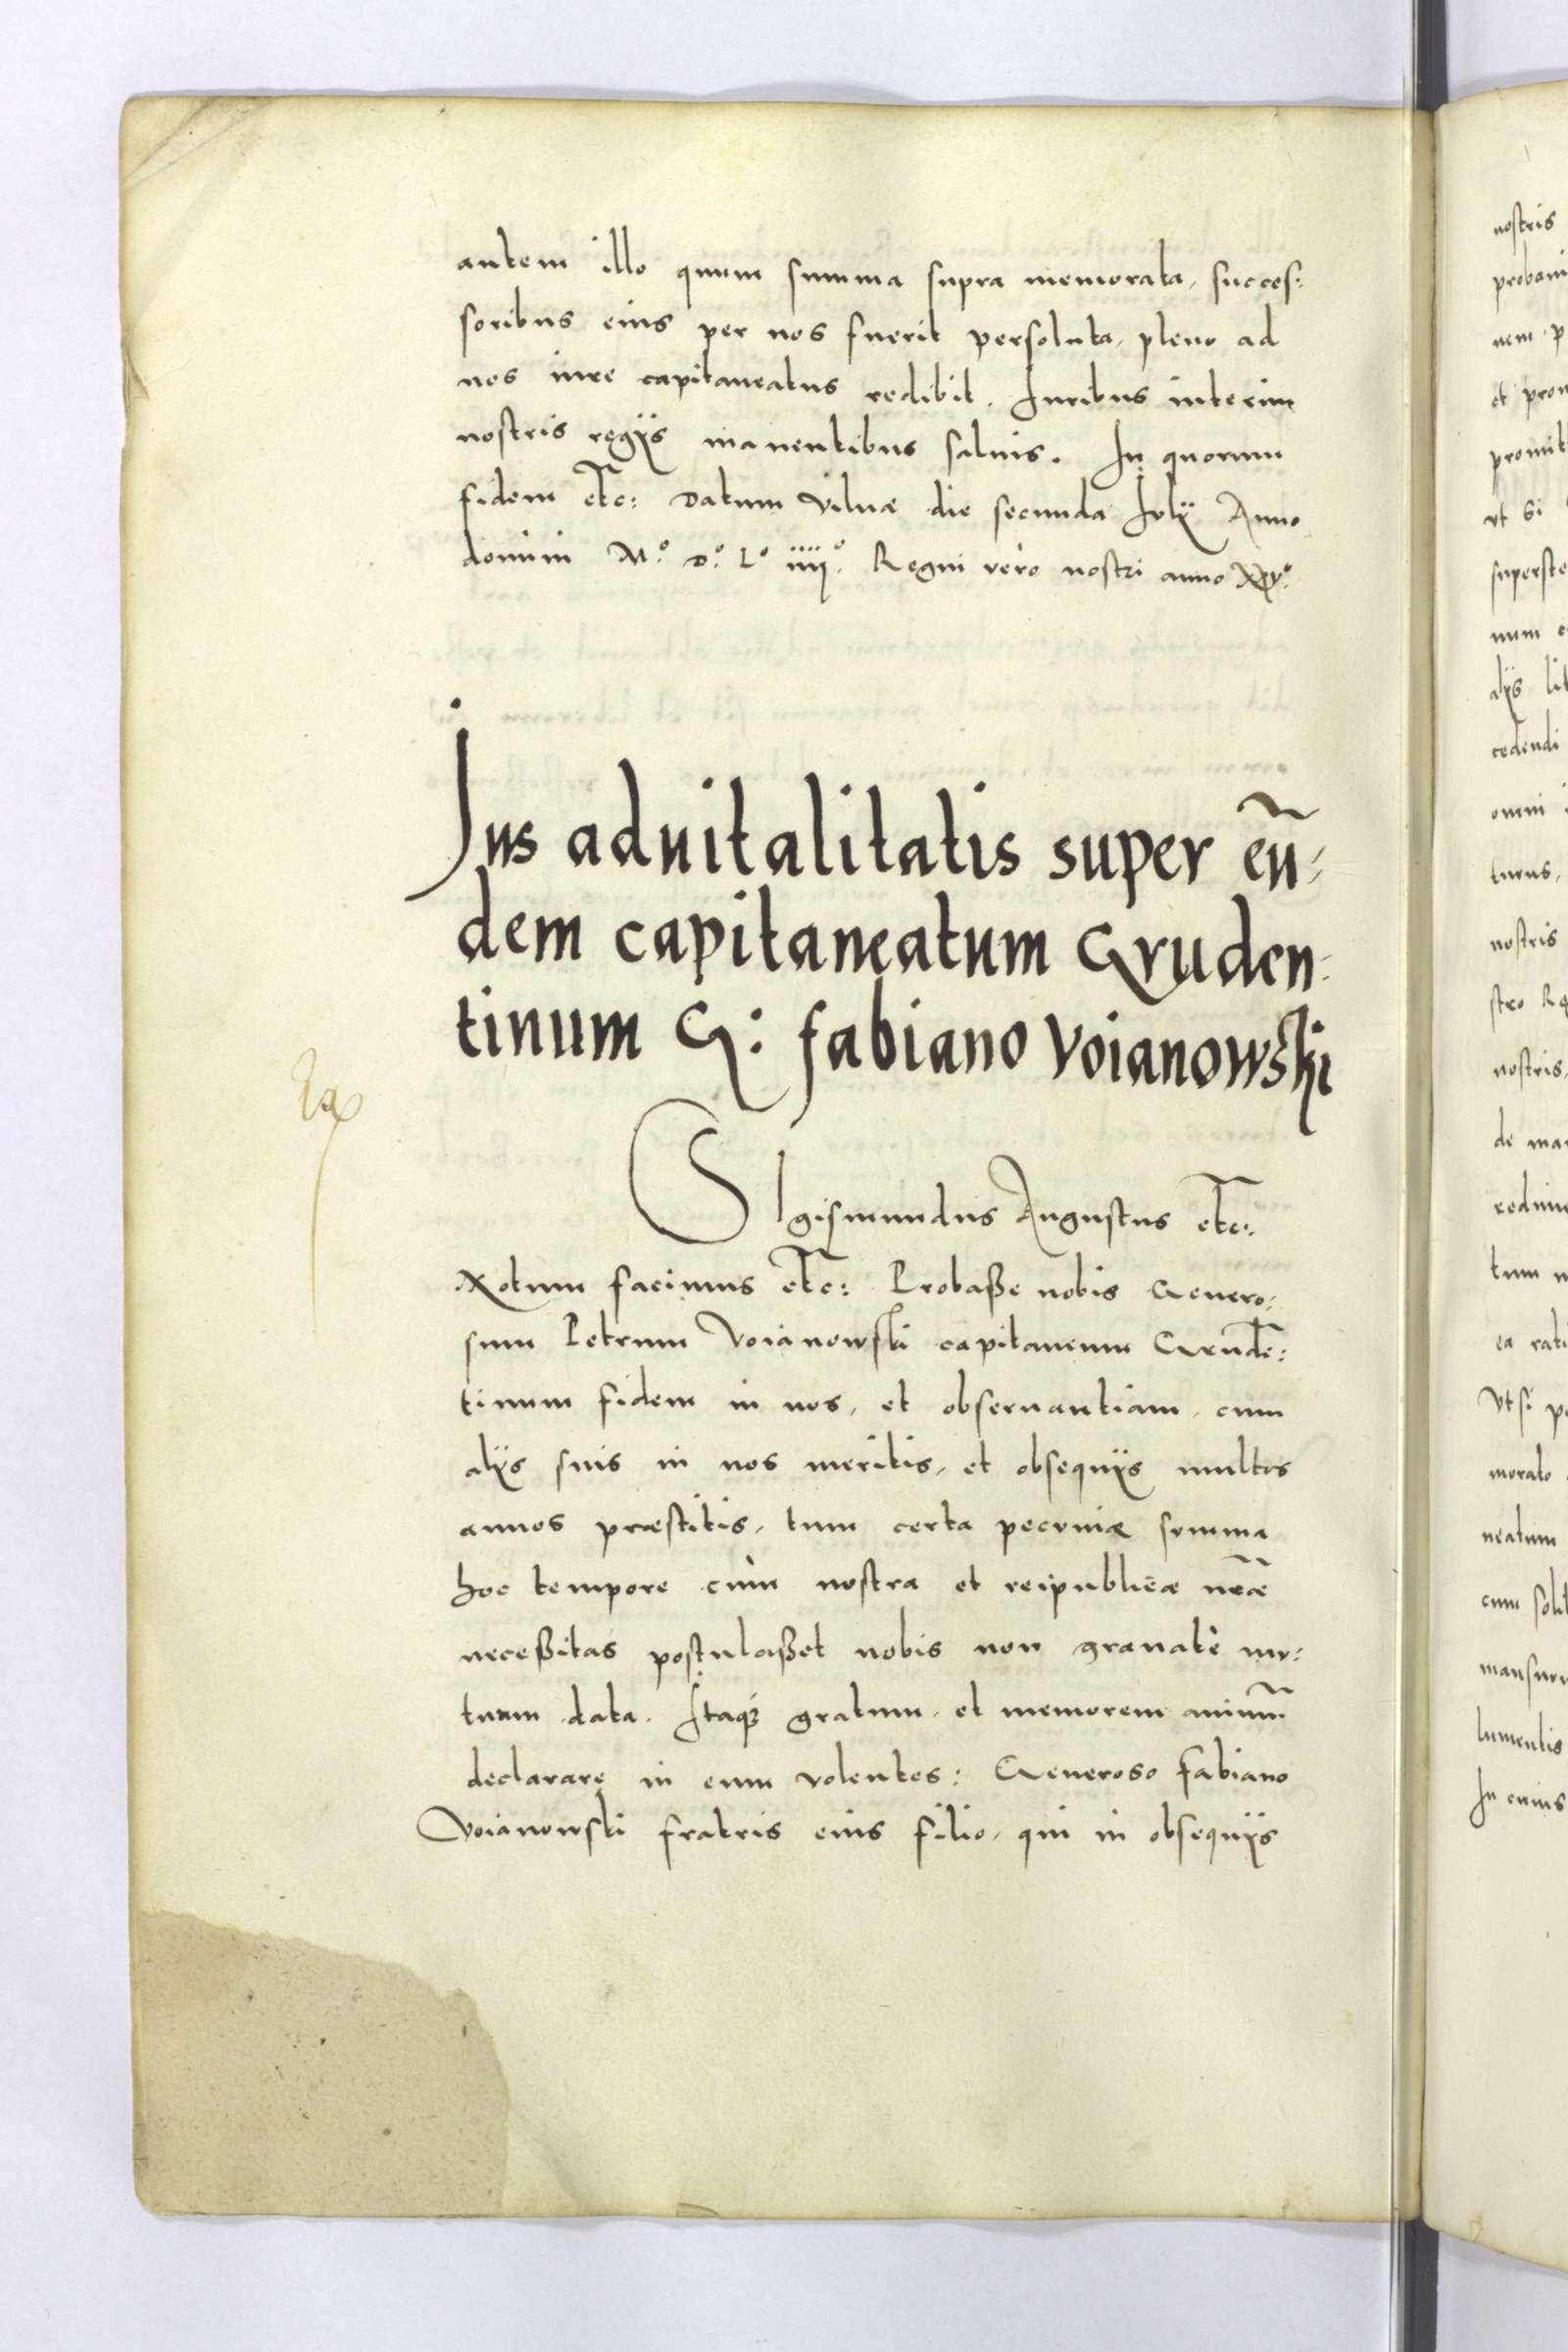 autem illo quum summa supra memorata, succes:
soribus eius per nos fuerit persoluta, pleno ad
nos iure capitaneatus redibit. Iuribus interim
nostris regijs manentibus saluis. In quorum
fidem etc: Datum Vilnæ die secunda Iulij Anno
domini M.º D.º L.º iiij.º Regni vero nostri anno XXV.º
Ius aduitalitatis super eũ-
dem capitaneatum Gruden:
tinum G: fabiano Voianowski
SIgismundus Augustus etc:
Notum facimus etc: Probaße nobis Genero:
sum Petrum Voianowski capitaneum Grudē:
tinum fidem in nos, et obseruantiam, cum
alijs suis in nos meritis, et obsequijs multos
annos præstitis, tum certa pecuniæ summa
hoc tempore cùm nostra et reipublicæ nr̃æ
neceßitas postulaßet nobis non grauatè mu:
tuum data. Itaq; gratum, et memorem animũ
declarare in eum volentes: Generoso Fabiano
Voianowski fratris eius filio, qui in obsequijs
nostris
et
promit
vt si
superste
num
alijs
cedendi
omni
nostris
nostris,
de
tum
ea
Vt si
neatum
cum
In cuius